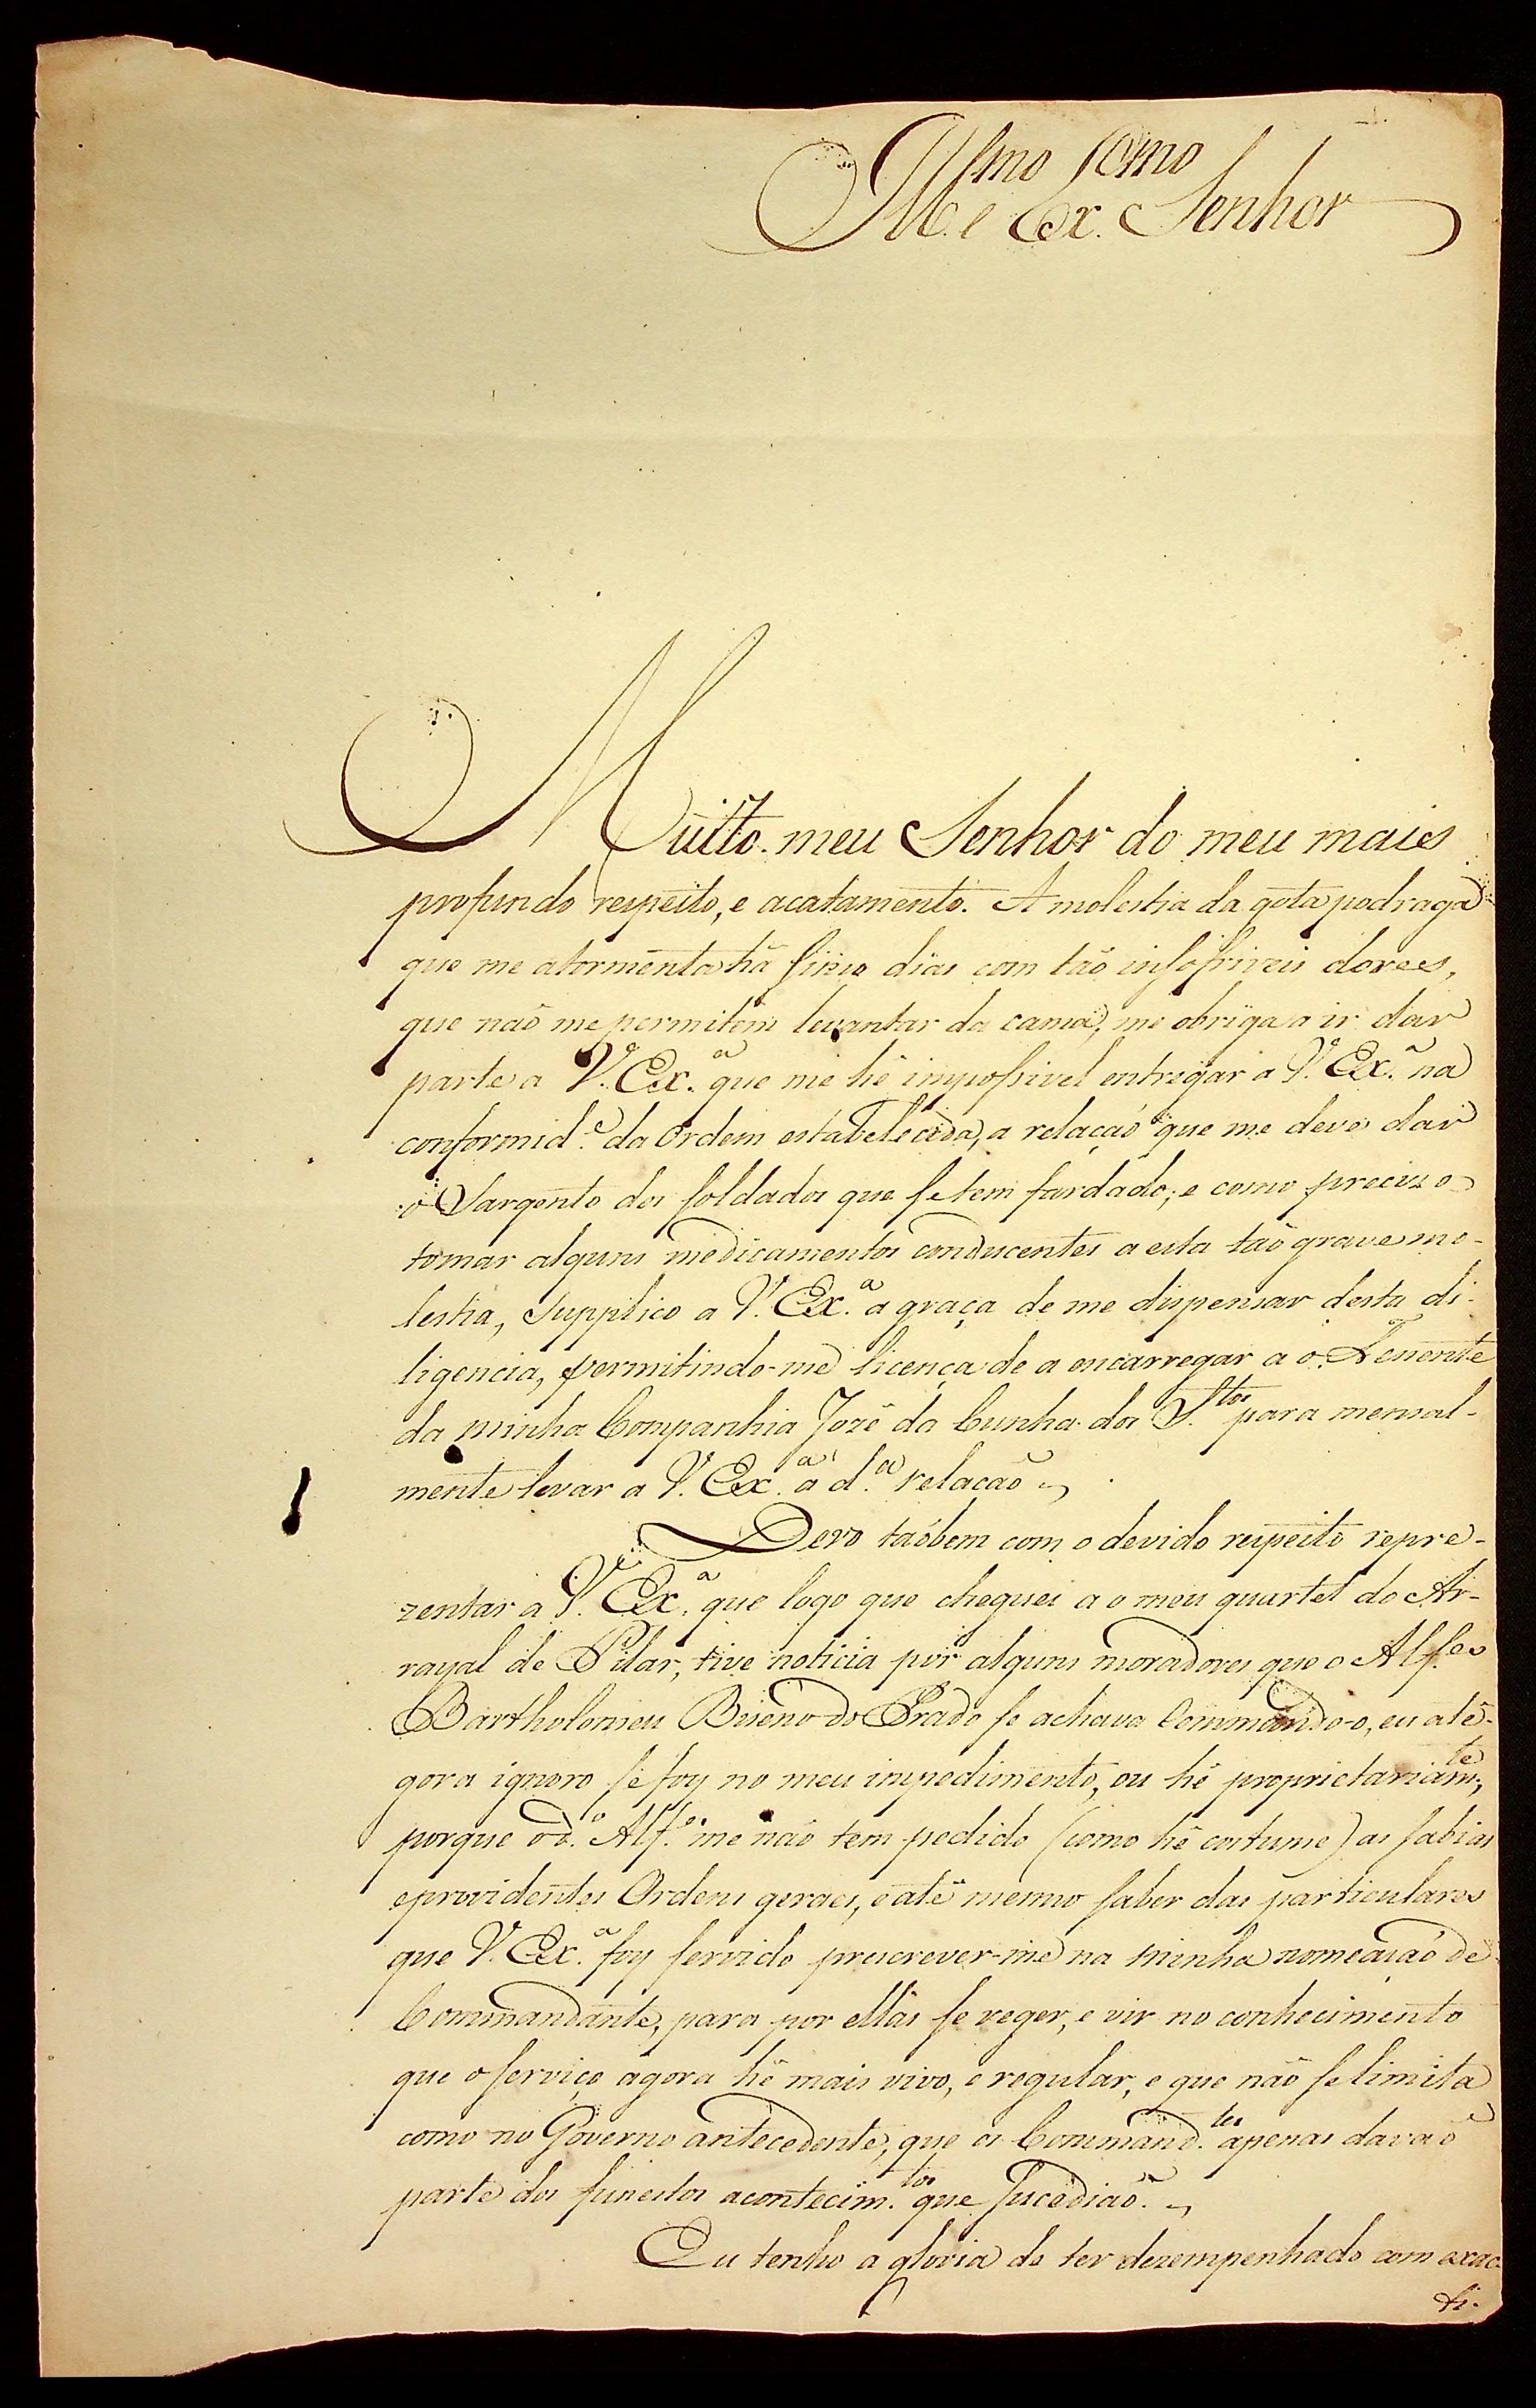 Illmo e Exmo Senhor
Muitto meu Senhor do meu maies
profundo respeito, e acatamento. A molestia da gota podraga
que me atormenta hâ sinco dias com tão insofriveis dorees,
que naõ me permitem levantar da cama, me obriga a ir dar
parte a V. Ex.ª que me hê impossivel entregar a V. Ex.ª na
conformid.e da Ordem estabelecida, a relaçaõ que me deve dar
o Sargento dos soldados que se tem fardado; e como preciso
tomar alguns medicamentos conducentes a esta tão grave mo-
lestia, supplico a V. Ex.ª a graça de me dispensar desta di-
ligencia, permitindo-me licença de a encarregar a o Tenente
da minha Companhia Jozê da Cunha dos S.tos para mensal-
mente levar a V. Ex.ª a d.ª relacão
Devo taõbem com o devido respeito repre-
zentar a V. Ex.ª que logo que cheguei a o meu quartel do Ar-
rayal de Pilar, tive noticia por alguns moradores que o Alf.es
Bartholomeu Bueno do Prado se achava Commando-o, eu atê-
gora ignoro se foy no meu impedimento, ou hê proprietariam.te,
porque o d.o Alf.es me não tem pedido (como hê costume) as sabias
e providentes Ordens geraes, e atê mesmo saber das particulares
que V. Ex.ª foy servido prescrever-me na minha nomeaçaõ de
Commandante, para por ellas se reger, e vir no conhecimento
que o serviço agora hê mais vivo, e regular, e que não se limita
como no Governo antecedente, que os Command.tes apenas davaõ
parte dos funestos acontecim.tos que sucediaõ.
Eu tenho a gloria de ter dezempenhado com exac
ti-